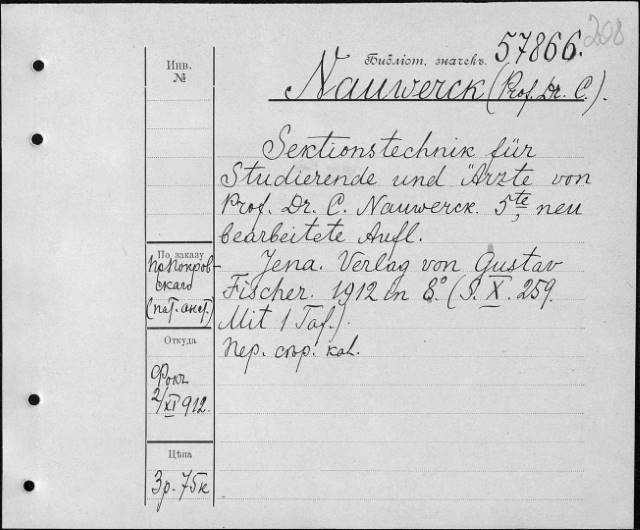 208
Библіот. значекъ. 57866.
Nauwerck (Prof. Dr. C.).
Инв.
№
Sektionstechnik für
Studierende und Ärzte von
Prof. Dr. C. Nauwerck. 5te, neu
bearbeitete Aufl.
Jena. Verlag von Gustav
Fischer. 1912 in 8.° (S. X. 259.
Mit 1 Taf.).
Пер. кал.
По заказу
Покров-
скаго
(пат. инст.)
Откуда
Фокъ
2/XI 912.
Цѣна
3р. 75к